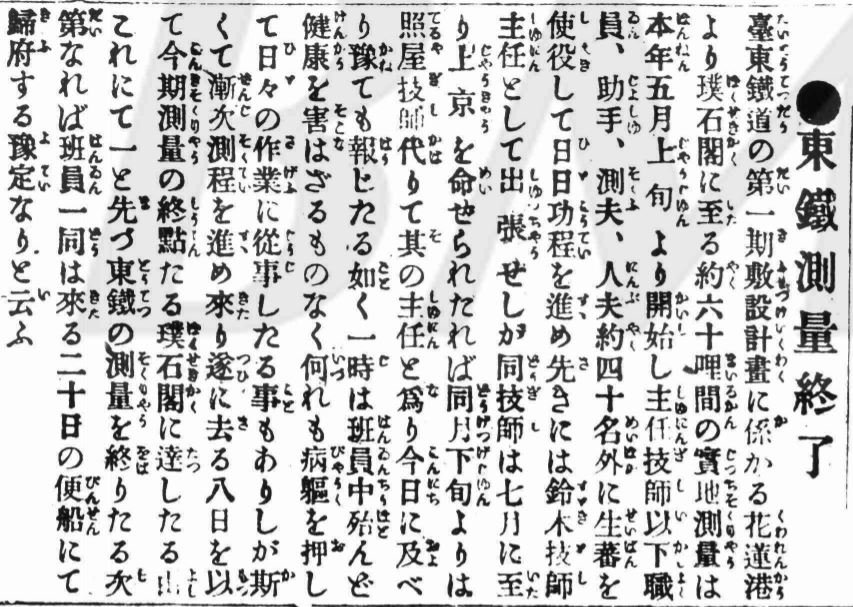 ●東鐵測量終了
臺東鐵道の第一期敷設計畫に係かる花蓮港
より璞石閣に至る約六十哩間の實地測量は
本年五月上旬より開始し主任技師以下職
員、助手、測夫、人夫約四十名外に生蕃を
使役して日日功程を進め先きには鈴木技師
主任として出張せしが同技師は七月に至
り上京を命ぜられたれば同月下旬よりは
照屋技師代りて其の主任と爲り今日に及べ
り豫ても報じたる如く一時は班員中殆んど
健康を害はざるものなく何れも病軀を押し
て日々の作業に從事したる事もありしが斯
くて漸次測程を進め來り遂に去る八日を以
て今期測量の終點たる璞石閣に達したる由
これにて一と先づ東鐵の測量を終りたる次
第なれば班員一同は來る二十日の便船にて
歸府する豫定なりと云ふ